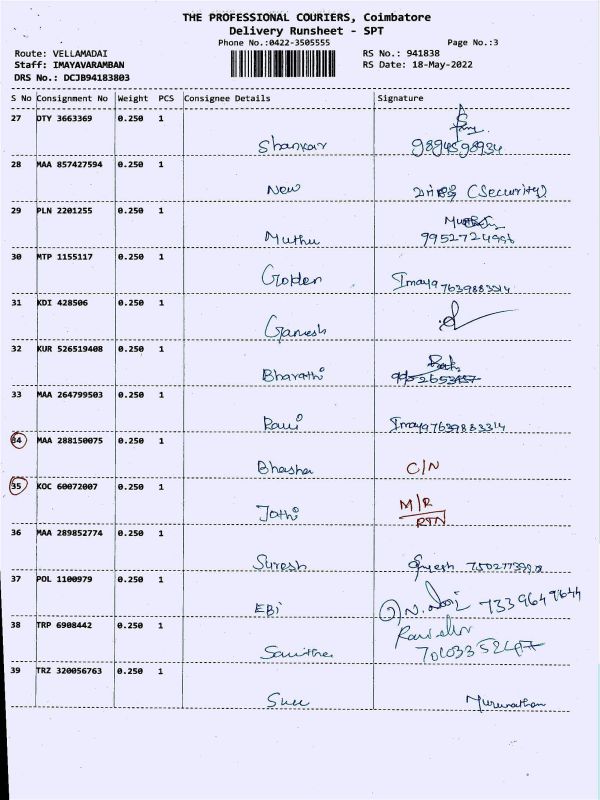 THE PROFESSIONAL COURIERS, Coimbatore
Delivery Runsheet - SPT
Phone No.:0422-3505555
Page No.:3
Route: VELLAMADAI
RS No.: 941838
Staff: IMAYAVARAMBAN
RS Date: 18-May-2022
DRS No.: DCJB94183803
S No Consignment No Weight PCS Consignee Details Signature
27 DTY 3663369 0.250 1
Shankar 9894598934
28 MAA 857427594 0.250 1
New (Security)
29 PLN 2201255 0.250 1
Muthu
30 MTP 1155117 0.250 1
Golden Imaya 7639883314
31 KDI 428506 0.250 1
Ganesh
32 KUR 526519408 0.250 1
Bharathi
33 MAA 264799503 0.250 1
Ravi Imaya 7639883314
34 MAA 288150075 0.250 1
Bhasha C/N
35 KOC 60072007 0.250 1
Jothi M/R
RTN
36 MAA 289852774 0.250 1
Suresh
37 POL 1100979 0.250 1
EBi 7339649644
38 TRP 6908442 0.250 1
39 TRZ 320056763 0.250 1